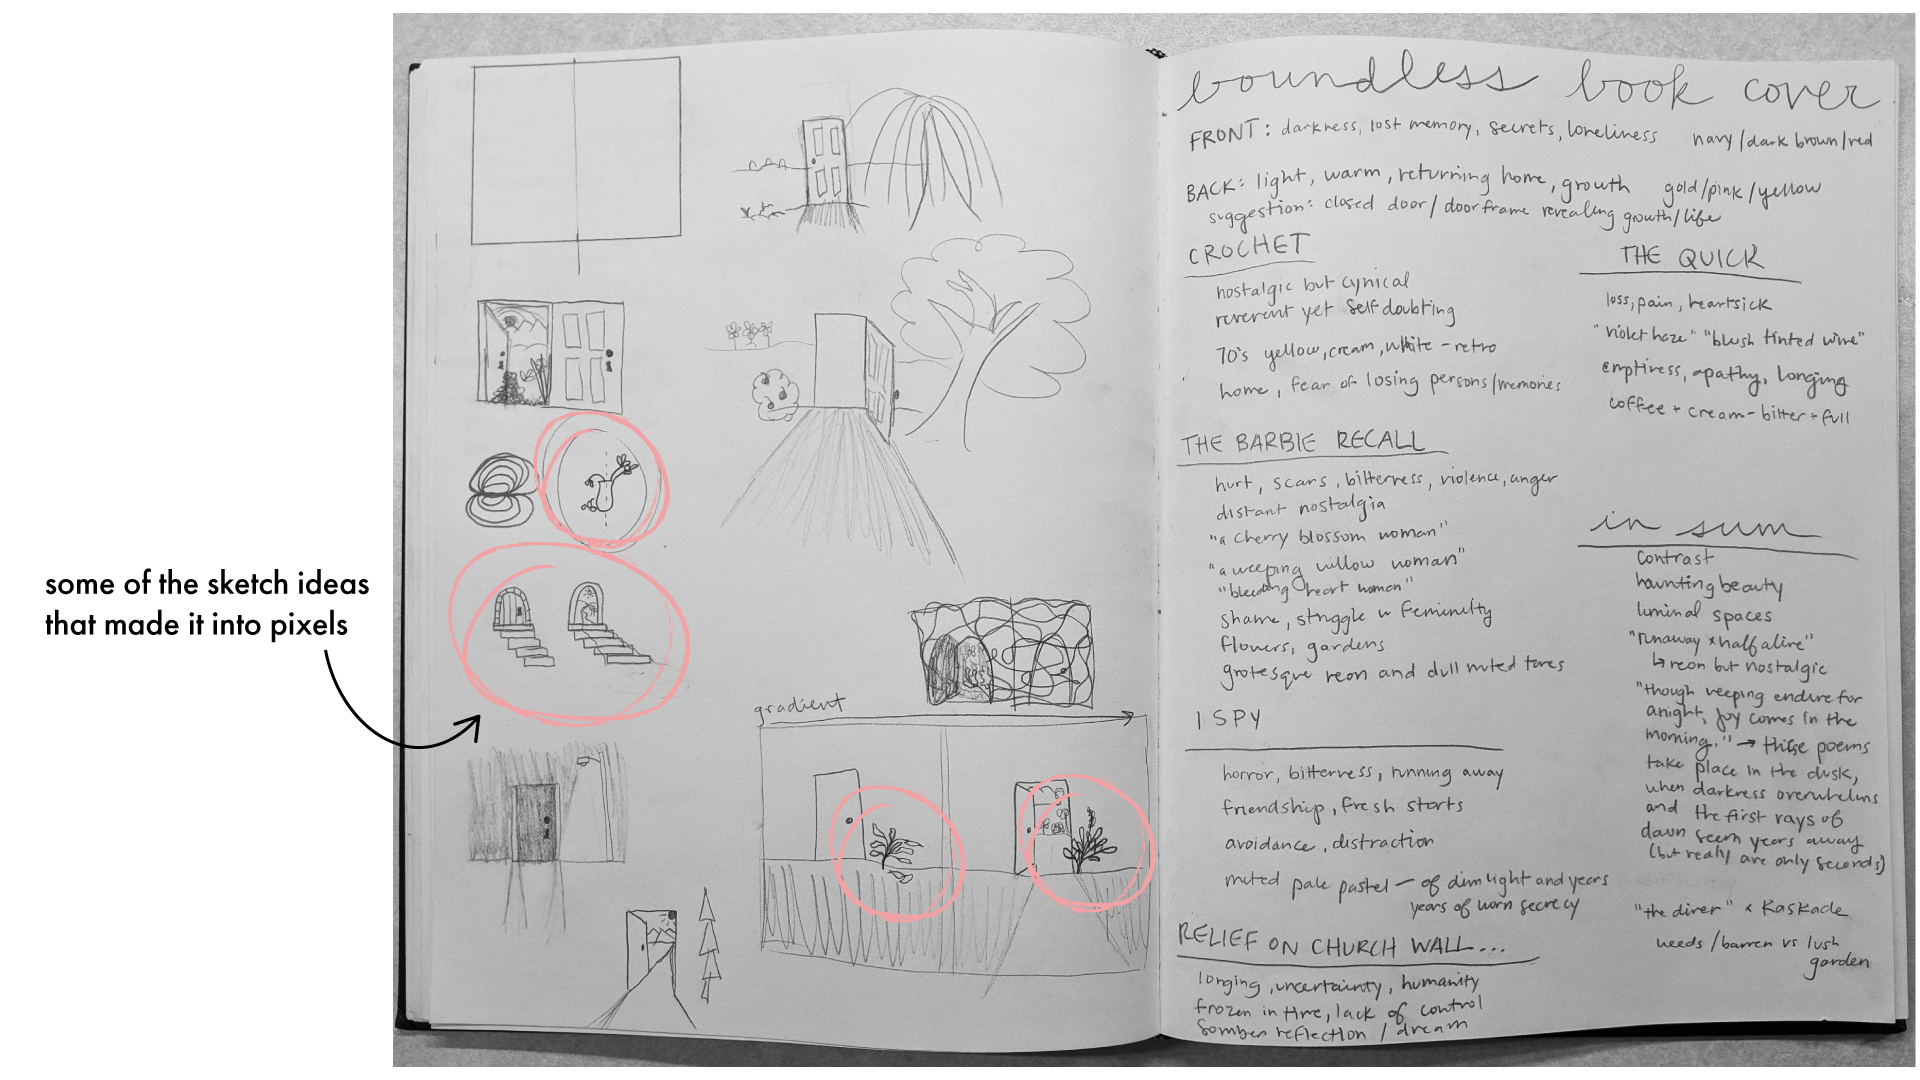 some of the sketch ideas
that made it into pixels
gradient
boundless book cover
FRONT: darkness, lost memory, secrets, loneliness navy/dark brown/red
BACK: light, warm, returning home, growth gold/pink/yellow
suggestion: closed door/doorframe revealing growth/life
CROCHET
nostalgic but cynical
reverent yet self doubting
70's yellow, cream, white - retro
home, fear of losing persons/memories
THE BARBIE RECALL
hurt, scars, bitterness, violence, anger
distant nostalgia
"a cherry blossom woman"
"a weeping willow woman"
"bleeding heart woman"
shame, struggle w feminity
flowers, gardens
grotesque neon and dull muted tones
I SPY
horror, bitterness, running away
friendship, fresh starts
avoidance, distraction
muted pale pastel - of dim light and years
years of worn secrecy
RELIEF ON CHURCH WALL...
longing, uncertainty, humanity
frozen in time, lack of control
somber reflection / dream
THE QUICK
loss, pain, heartsick
"violet haze" "blush tinted wine"
emptiness, apathy, longing
coffee + cream - bitter + full
in sum
contrast
haunting beauty
liminal spaces
"runaway x half alive"
↳ neon but nostalgic
"though weeping endure for
a night, joy comes in the
morning." → these poems
take place in the dusk,
when darkness overwhelms
and the first rays of
dawn seem years away
(but really are only seconds)
"the diner" x Kaskade
weeds/barren vs lush
garden